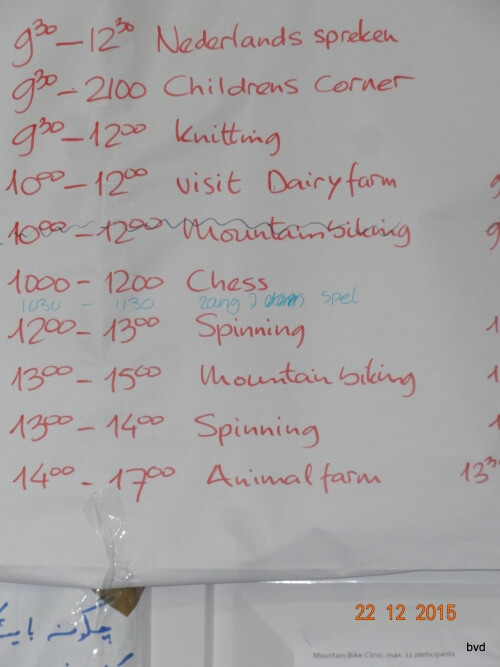 9³⁰ – 12³⁰ Nederlands spreken
9³⁰ – 2100 Childrens corner
9³⁰ – 12⁰⁰ knitting
10⁰⁰ – 12⁰⁰ visit Dairyfarm
10⁰⁰ – 12⁰⁰ Mountainbiking
1000 – 1200 Chess
1030 – 1130 zang spel
12⁰⁰ – 13⁰⁰ Spinning
13⁰⁰ – 15⁰⁰ Mountainbiking
13⁰⁰ – 14⁰⁰ Spinning
14⁰⁰ – 17⁰⁰ Animalfarm
13³
چگونه
22 12 2015
Mountain Bike Clinic: max. 12 participants
bvd